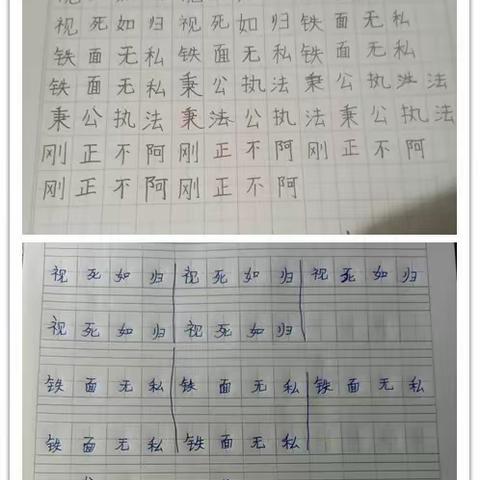 视死如归视死如归铁面无私
铁面无私铁面无私铁面无私
铁面无私秉公执法秉公执法法
秉公执法秉法公执法秉公执法
刚正不阿刚正不阿刚正不阿
刚正不阿刚正不阿
视死如归视死如归视死如归
视死如归视死如归
铁面无私铁面无私铁面无私
铁面无私铁面无私